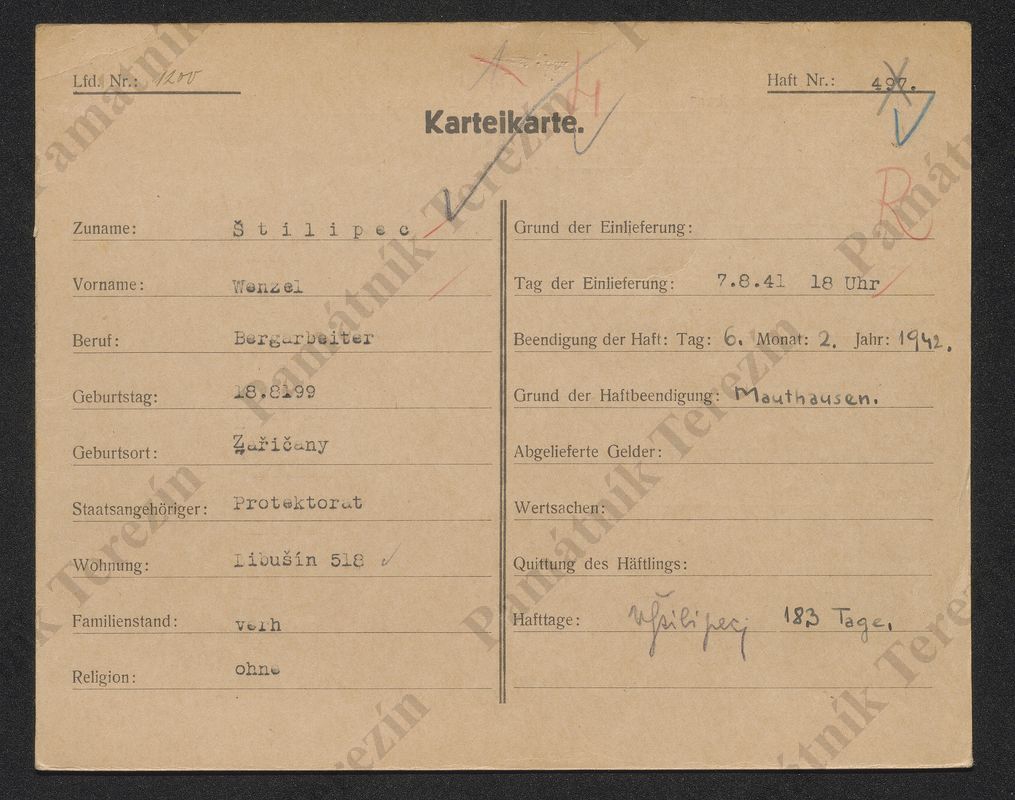 Lfd. Nr.: 1200
Haft Nr.: 497.
Karteikarte.
Zuname: Štilipec
Vorname: Wenzel
Beruf: Bergarbeiter
Geburtstag: 18.8199
Geburtsort: Zařičany
Staatsangehöriger: Protektorat
Wohnung: Libušín 518
Familienstand: verh
Religion: ohne
Grund der Einlieferung:
Tag der Einlieferung: 7.8.41 18 Uhr
Beendigung der Haft: Tag: 6. Monat: 2. Jahr: 1942.
Grund der Haftbeendigung: Mauthausen.
Abgelieferte Gelder:
Wertsachen:
Quittung des Häftlings:
Hafttage: 183 Tage.
R
Památník Terezín
Památník Terezín
Památník Terezín
Památník Terezín